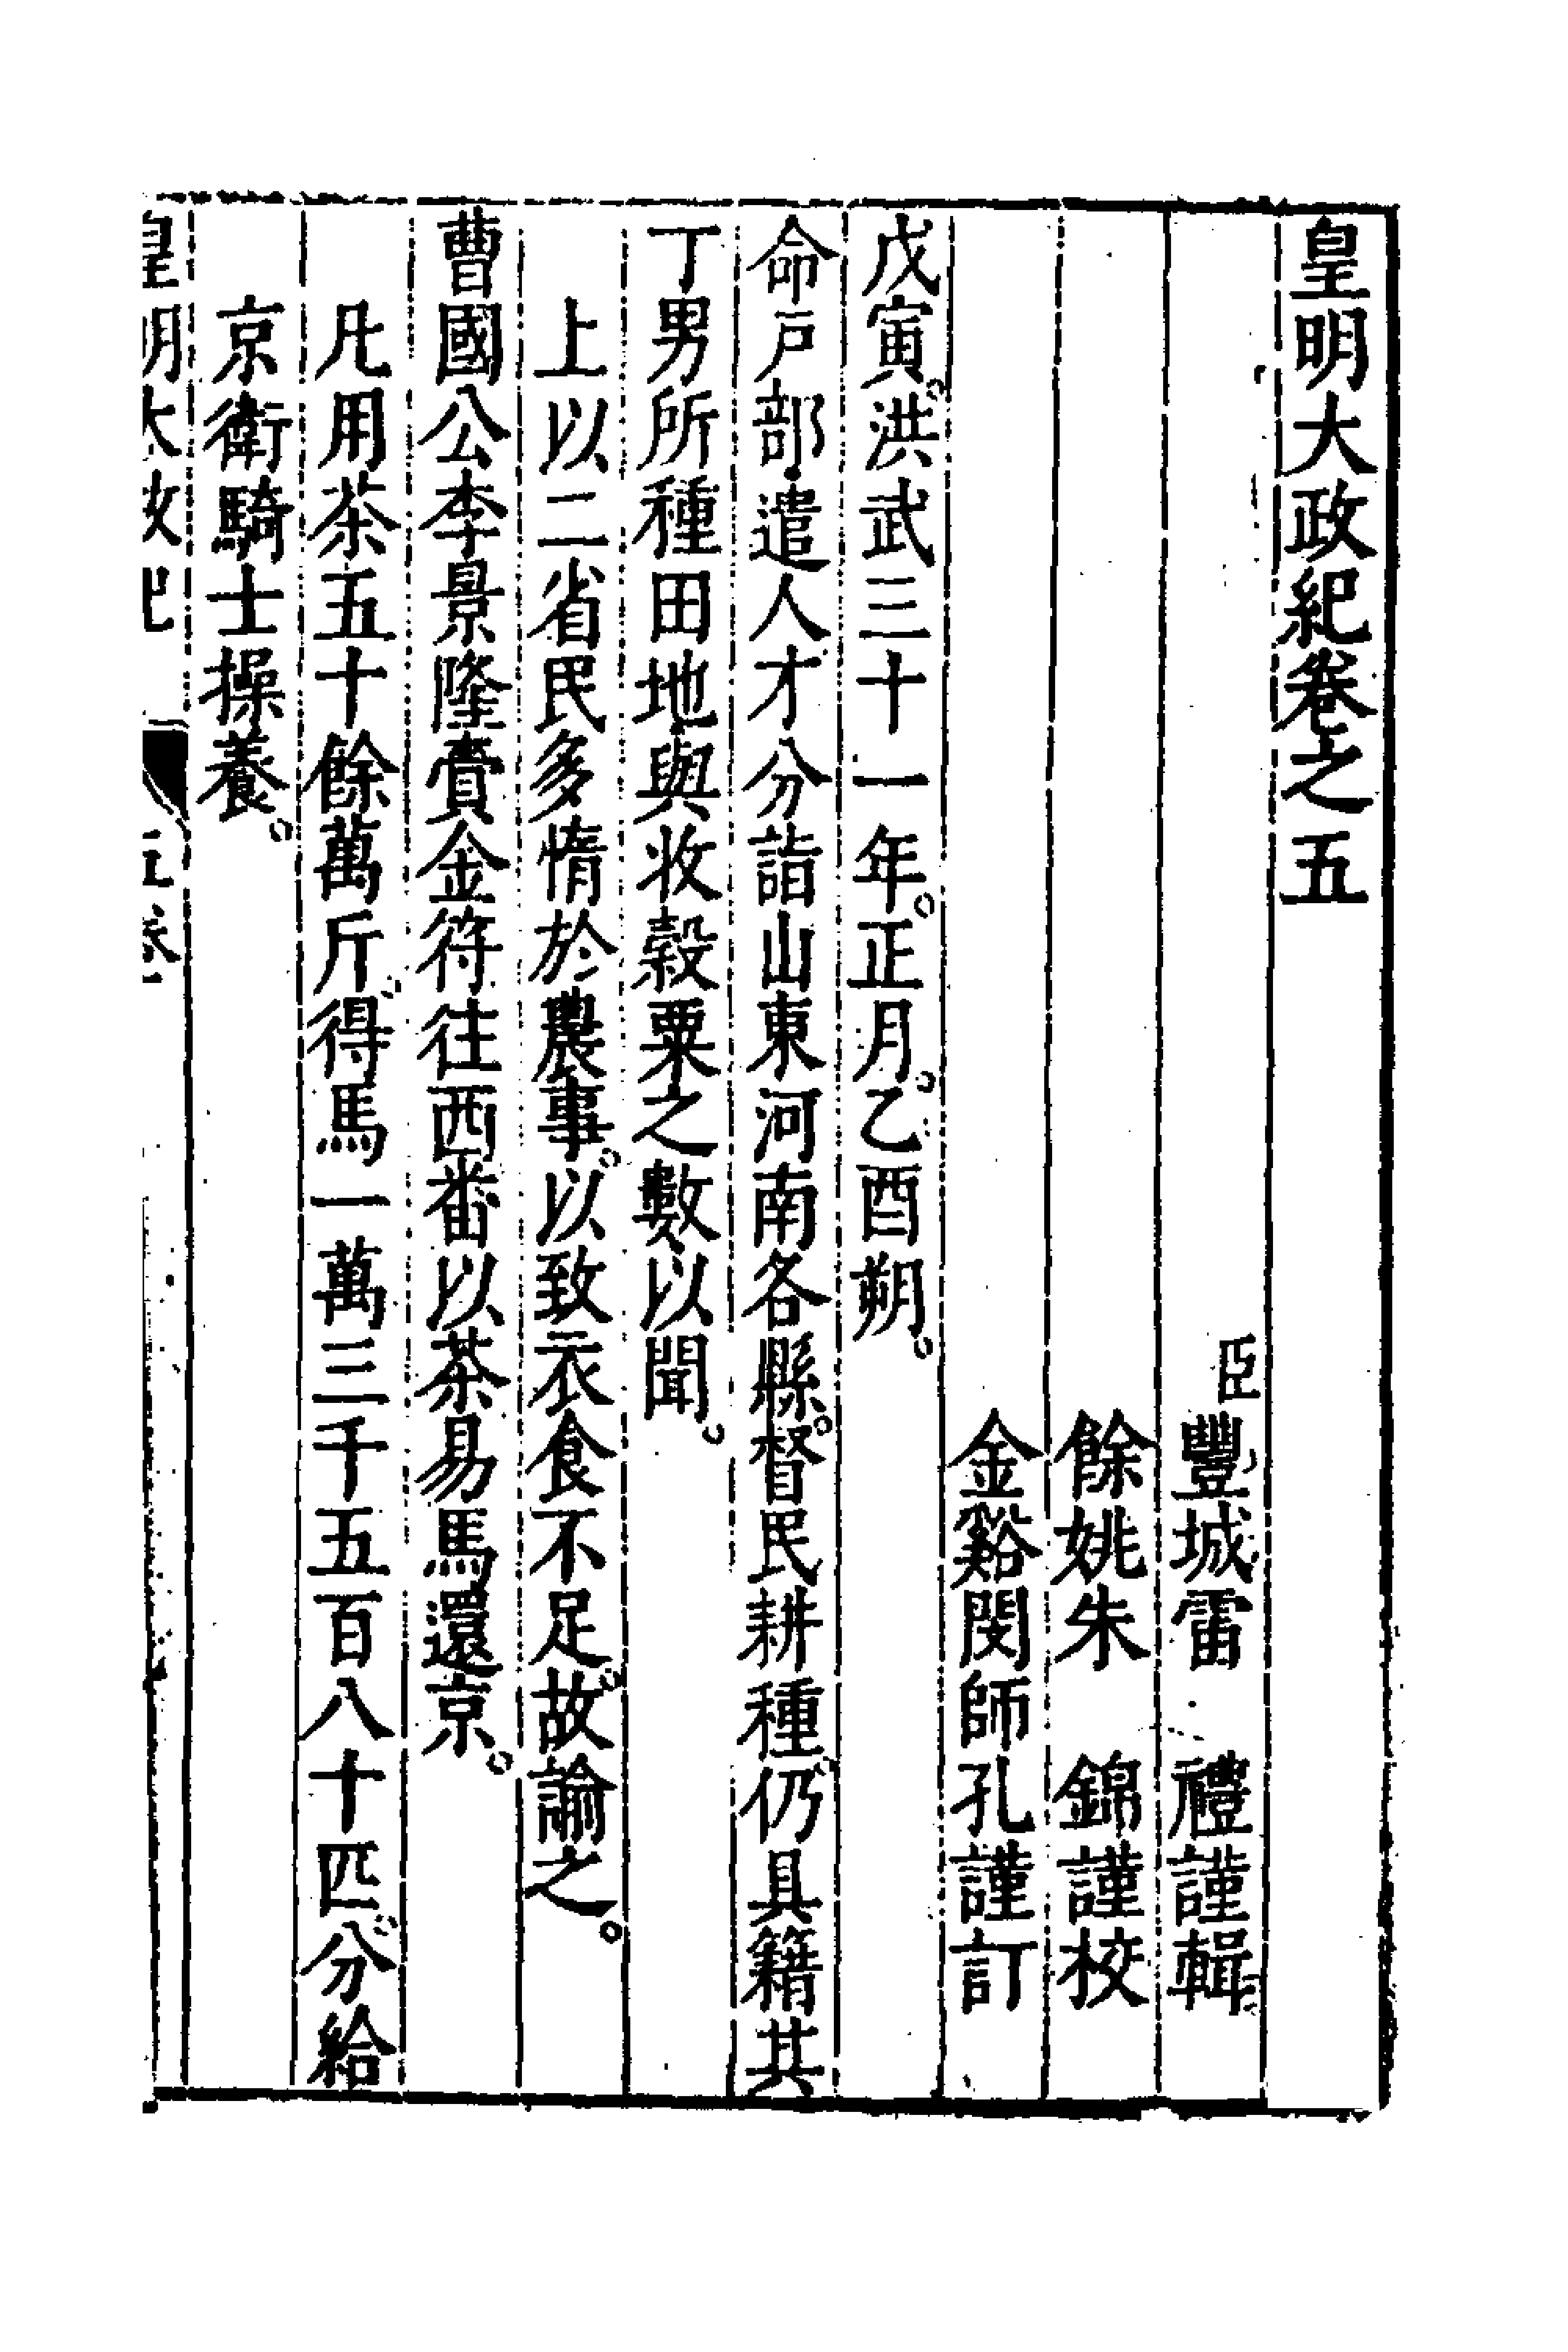 皇明大政紀卷之五
臣豐城雷 禮謹輯
餘姚朱 錦謹校
金谿閔師孔謹訂
戊寅。洪武三十一年。正月。乙酉朔。
命戶部遣人才分詣山東河南各縣。督民耕種。仍具籍其
丁男所種田地與收穀粟之數以聞。
上以二省民多惰於農事。以致衣食不足。故諭之。
曹國公李景隆賫金符往西番以茶易馬還京。
凡用茶五十餘萬斤。得馬一萬三千五百八十匹。分給
京衛騎士操養。
皇明大政紀 五卷